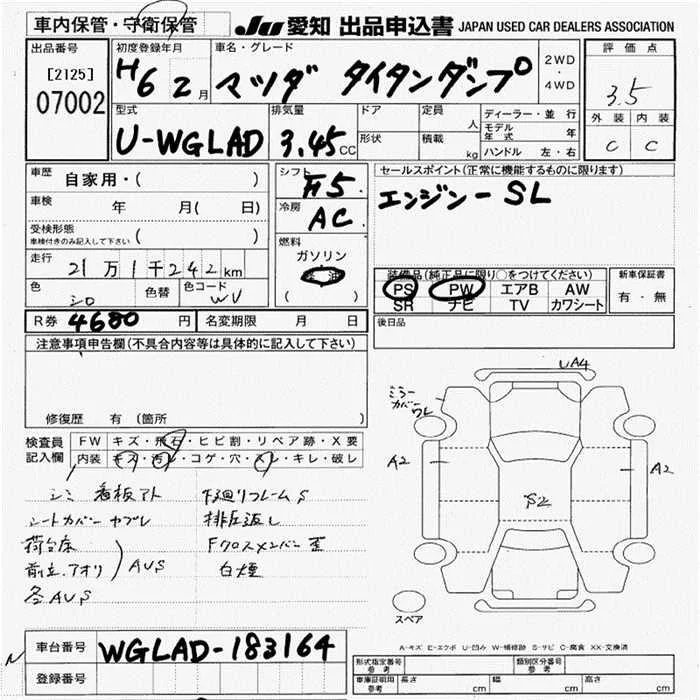 車内保管・守衛保管
JU 愛知 出品申込書 JAPAN USED CAR DEALERS ASSOCIATION
出品番号
[2125]
07002
初度登録年月
H6 2月
車名・グレード
マツダ タイタンダンプ
2WD
・
4WD
評価点
3.5
外装 内装
C C
型式
U-WGLAD
排気量
3.45CC
ドア
形状
定員
人
積載
kg
ディーラー・並行
モデル年式 年
ハンドル 左・右
車歴 自家用・( )
車検 年 月( 日)
受検形態
車検付きのみ記入して下さい ( )
走行 21万1千242km
色 シロ
色替
色コード WV
シフト F5
冷房 AC
燃料
ガソリン
軽油
( )
セールスポイント(正常に機能するものに限ります)
エンジン-SL
装備品(純正品に限り○をつけてください)
PS PW エアB AW
SR ナビ TV カワシート
新車保証書
有・無
後日品
R券 4680円 名変期限 月 日
注意事項申告欄(不具合内容等は具体的に記入して下さい)
修復歴 有 (箇所 )
検査員記入欄
FW キズ・飛石・ヒビ割・リペア跡・X要
内装 キズ・汚レ・コゲ・穴・スレ・キレ・破レ
シミ 看板アト
シートカバー ヤブレ
荷台床
前立.アオリ ) AUS
各AUS
下廻りフレームS
排圧返し
Fクロスメンバー歪
白煙
UA4
ミラーカバーワレ
A2
A2
S2
スペア
A-キズ E-エクボ U-凹み W-補修跡 S-サビ C-腐食 XX-交換済
車台番号 WGLAD-183164
登録番号
形式指定番号
参考
類別区分番号
参考
車庫証明用
参考
長さ cm 幅 cm 高さ cm